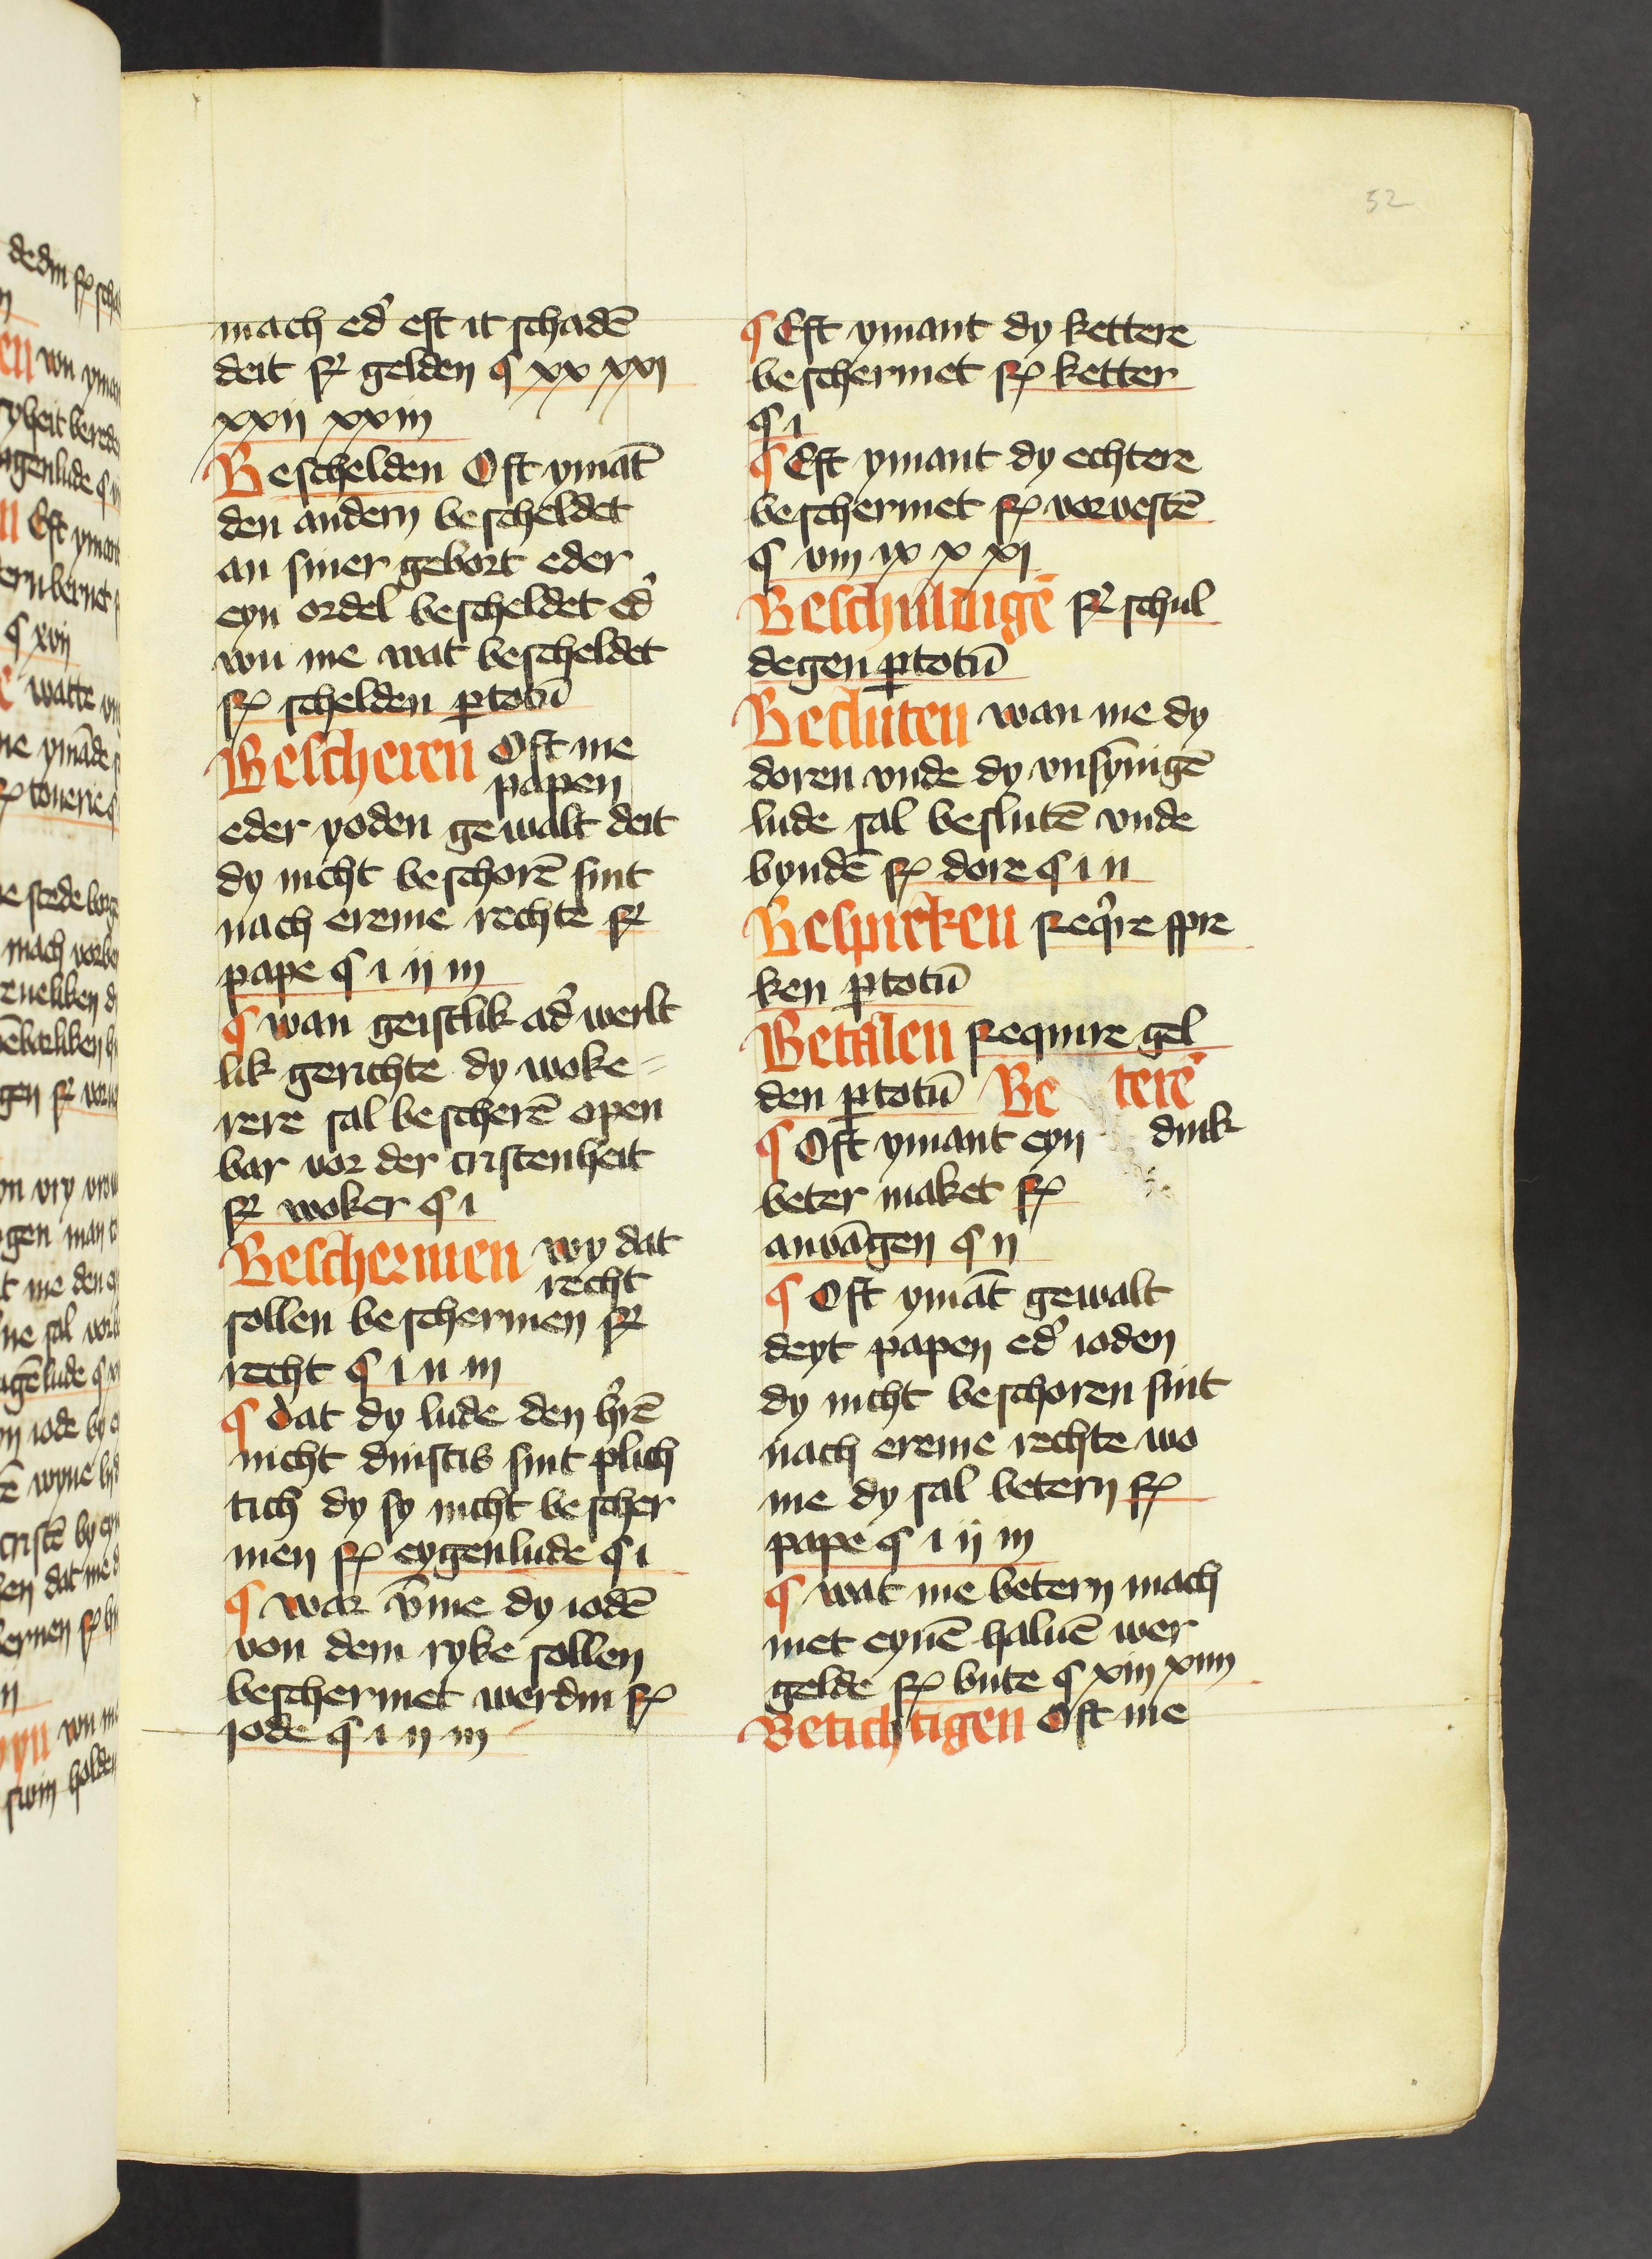 52
mach ed' eft it schadē
deit R gelden ¶ xx xxi
xxii xxiii
Beschelden Oft ymāt
den andern bescheldet
an siner gebort eder
eyn ordel bescheldet ed'
wu me wat bescheldet
R schelden ꝑ totū
Bescheren Oft me
papen
eder yoden gewalt deit
dy nicht beschorē sint
nach ereme rechte R
pape ¶ i ii iii
¶ wan geistlik ad' werlt
lik gerichte dy woke=
rere sal bescherē open
bar vor der cristenheit
R woker ¶ i
Beschermen wy dat
recht
sollen beschermen R
recht ¶ i ii iii
¶ dat dy lude den h'rē
nicht dinstis sint plich
tich dy sy nicht bescher
men R eygenlude ¶ i
¶ war v̄me dy iodē
von dem ryke sollen
beschermet werdin R
iode ¶ i ii iii
¶ Eft ymant dy kettere
beschermet R ketter
¶ i
¶ Eft ymant dy echtere
beschermet R vorvestē
¶ viii ix x xi
Beschuldigē R schul
degen ꝑ totū
Besluten wan me dy
doren vnde dy vnsȳnigē
lude sal beslutē vnde
byndē R dore ¶ i ii
Bespreken Req're spre
ken ꝑ totū
Betalen Require gel
den ꝑ totū Be terē
¶ Oft ymant eyn dink
beter maket R
anvāgen ¶ ii
¶ Oft ymāt gewalt
deyt papen ed' ioden
dy nicht beschoren sint
nach ereme rechte wo
me dy sal betern R
pape ¶ i ii iii
¶ wat me betern mach
met eynē haluē wer
gelde R bute ¶ xiii xiiii
Betichtigen Oft me